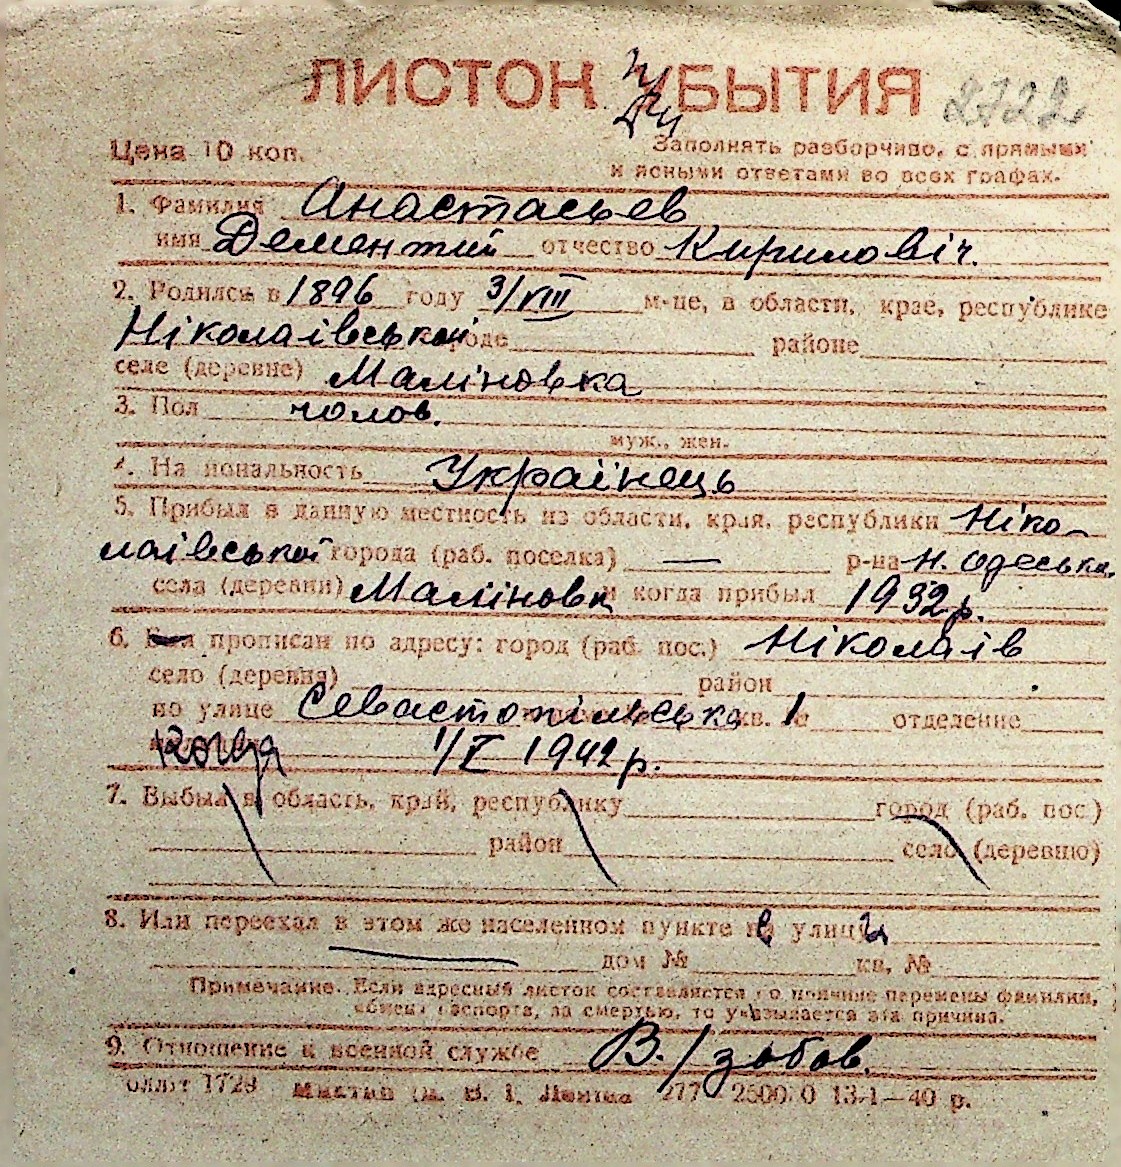 ЛИСТОК УБЫТИЯ 2722
Цена 10 коп. Заполнять разборчиво, с прямыми
и ясными ответами во всех графах.
1. Фамилия Анастасьев
имя Дементий отчество Кириловіч.
2. Родился в 1896 году 3/VIII м-це, в области, крае, республике
Ніколаівській городе районе
селе (деревне) Маліновка
3. Пол чолов.
муж., жен.
4. Национальность Українець
5. Прибыл в данную местность из области, края, республики Ніко-
лаівської города (раб. поселка) — р-на Н. Одеська.
села (деревни) Маліновк и когда прибыл 1932 р.
6. прописан по адресу: город (раб. пос.) Ніколаів
село (деревня) район
по улице Севастопільська кв. № 1 отделение
когда 1/I 1942 р.
7. Выбыл в область, край, республику город (раб. пос.)
район село (деревню)
8. Или переехал в этом же населенном пункте улицу
дом № кв. №
Примечание. Если адресный листок составляется по причине перемены фамилии,
обмена паспорта, за смертью, то указывается эта причина.
9. Отношение к военной службе В./зобов.
1728 В. І. Леніна 277 2500 0 13-1—40 р.